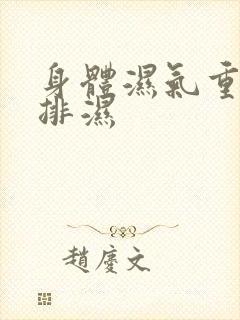 身體濕氣重
排濕
趙慶文